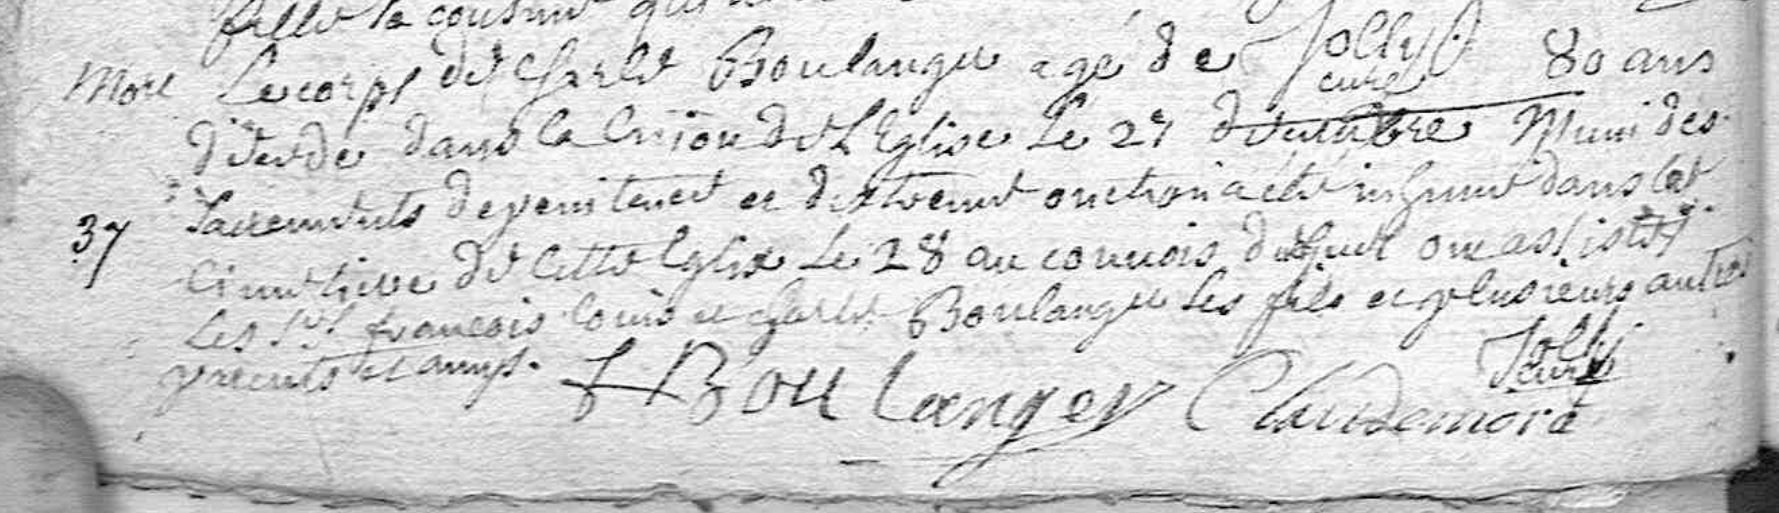 fille la cousine
Mort Le corps de Charle Boulanger agé de 80 ans
Jolly
curé
décédé dans la Union de L'Eglise Le 27 décembre Muni des
37 Sacrements de penitence et d'extreme onction a été inhumé dans le
Cimetiere de Cette Eglise Le 28 au convois duquel ont assistés
Les Srs francois louis et Charle Boulanger Ses fils et plusieurs autres
parents et amys.
Jolly
curé
f Boulanger Claudemora